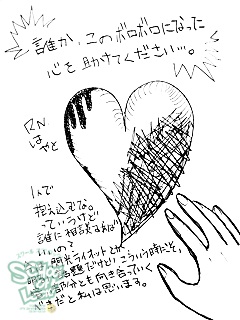 誰か、このボロボロになった
心を助けてください…。
RN
はやと
1人で
抱え込むな。
っていうけど
誰に相談すればいい
いいの?
閃光ライオットとか
話題だけど、こういう時にこそ、
部分とも向き合っていく
べきだと私は思います。